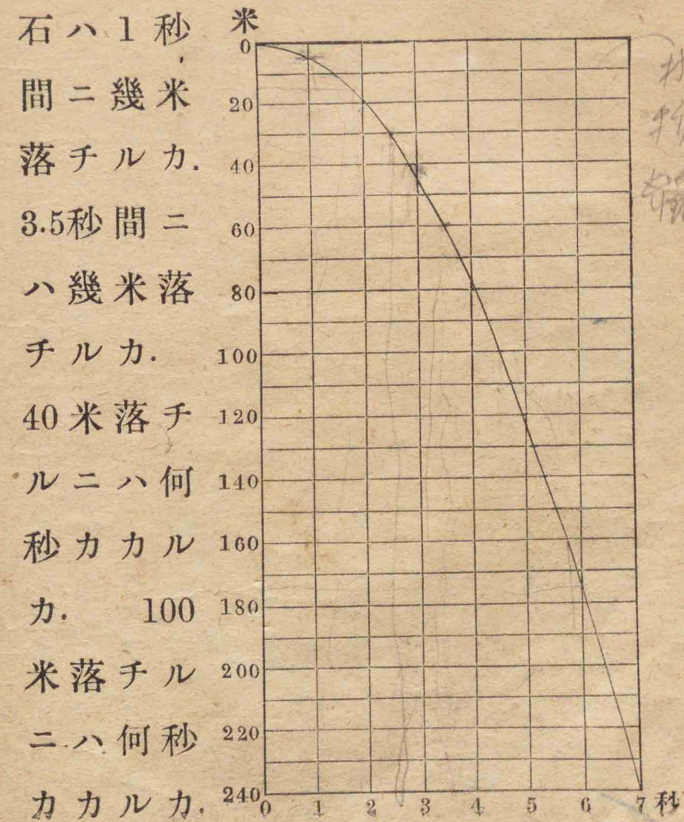 石ハ1秒
間ニ幾米
落チルカ.
3.5秒間ニ
ハ幾米落
チルカ.
40米落チ
ルニハ何
秒カカル
カ. 100
米落チル
ニハ何秒
カカルカ.
米
0
20
40
60
80
100
120
140
160
180
200
220
240
0 1 2 3 4 5 6 7 秒